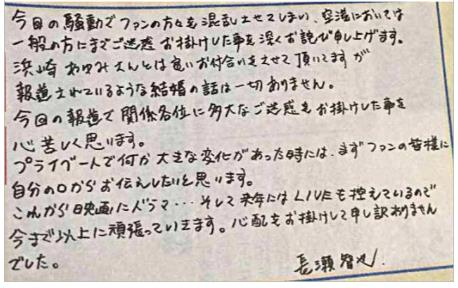 今回の騒動でファンの方々を混乱させてしまい、空港においては
一般の方にまでご迷惑お掛けした事を深くお詫び申し上げます。
浜崎あゆみさんとは良いお付合いをさせて頂いてますが
報道されているような結婚の話は一切ありません。
今回の報道で関係各位に多大なご迷惑をお掛けした事を
心苦しく思います。
プライベートで何か大きな変化があった時には、まずファンの皆様に
自分の口からお伝えしたいと思います。
これから映画にドラマ…そして来年にはLIVEも控えているので
今まで以上に頑張っていきます。心配をお掛けして申し訳ありません
でした。
長瀬智也